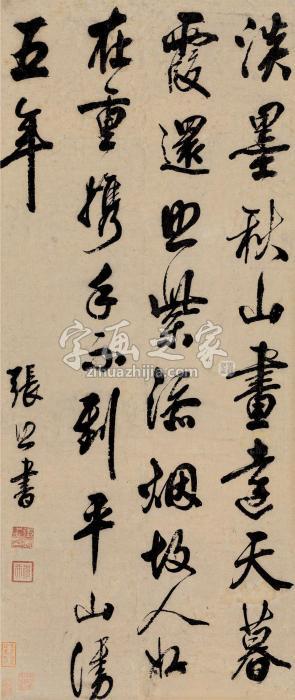 淡墨秋山畫遠天暮
霞還照紫添烟故人好
在重携手不到平山漫
五年
張照書
字画之家
zihuazhijia.com